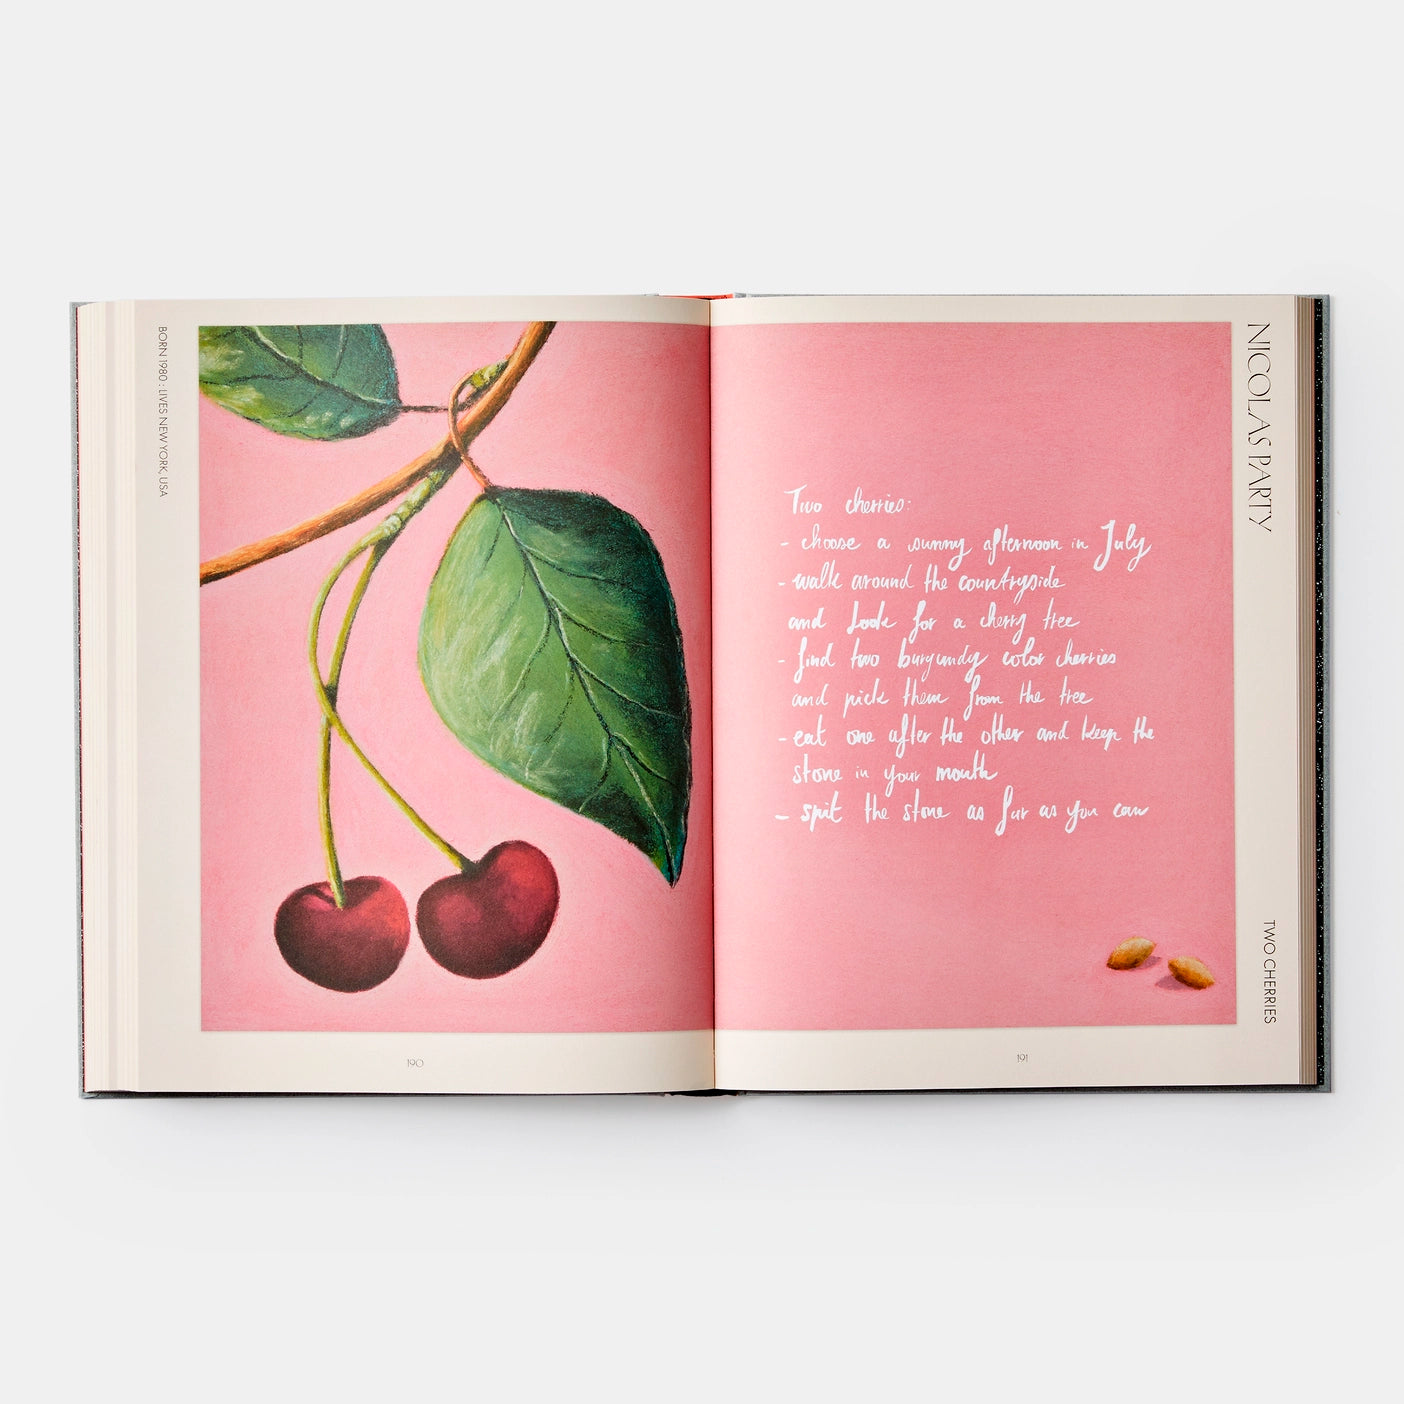 BORN 1980 : LIVES NEW YORK, USA
190
NICOLAS PARTY
Two cherries:
- choose a sunny afternoon in July
- walk around the countryside
and look for a cherry tree
- find two burgundy color cherries
and pick them from the tree
- eat one after the other and keep the
stone in your mouth
- spit the stone as far as you can
TWO CHERRIES
191